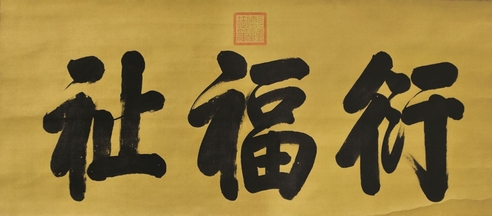 衍福祉